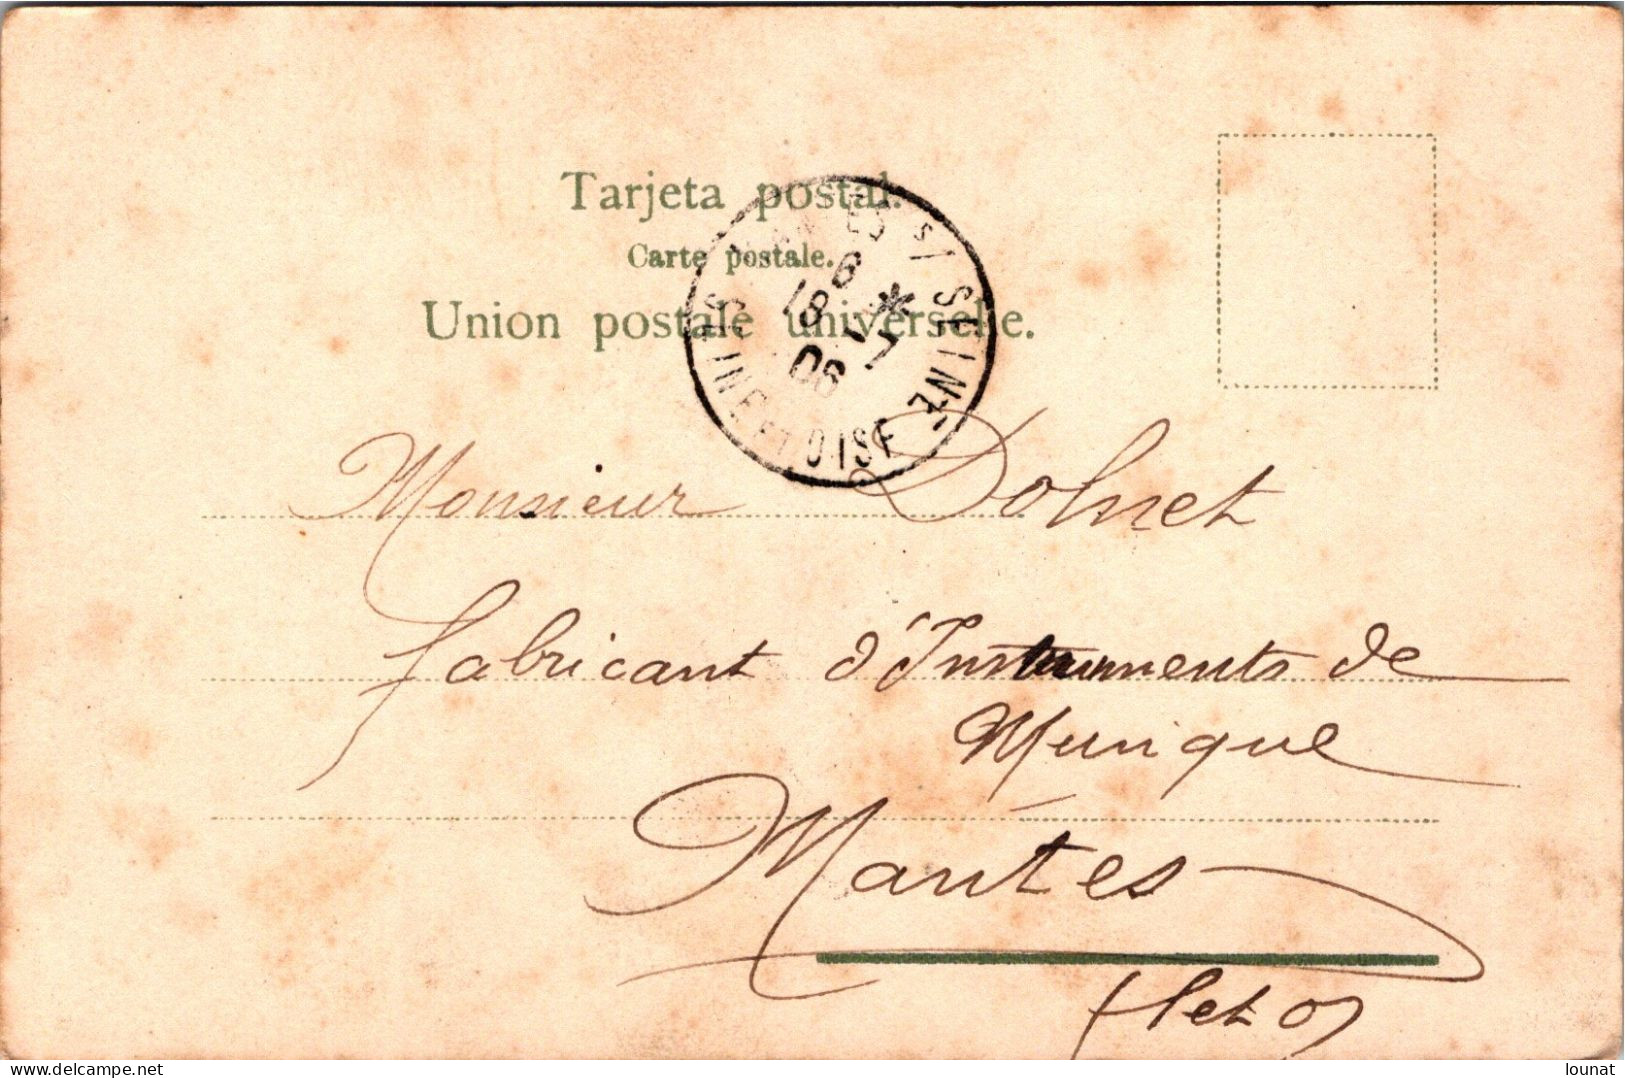 Tarjeta postal.
Carte postale.
Union postale universelle.
MANTES S/ SEINE
SEINE ET OISE
6 *
18 - 7
06
Monsieur Dolnet
fabricant d'Instruments de
Musique
Mantes
(S et O)
delcampe.net
lounat